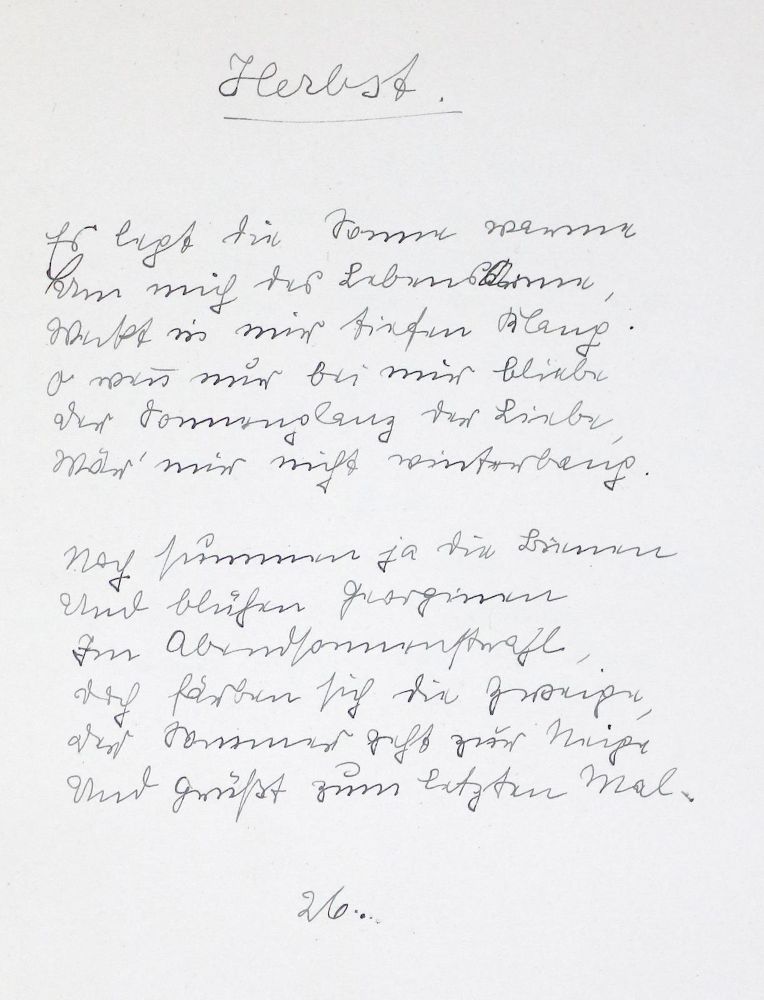 Herbst.
Es legt die Sonne warme
Um mich des Lebens Arme,
Weckt in mir tiefen Klang.
O wenn nur bei mir bliebe
Der Sonnenglanz der Liebe,
Wär' mir nicht winterbang.
Noch summen ja die Bienen
Und blühen Georginen
Im Abendsonnenstrahl,
Doch färben sich die Zweige,
Der Sommer geht zur Neige
Und grüßt zum letzten Mal.
26...